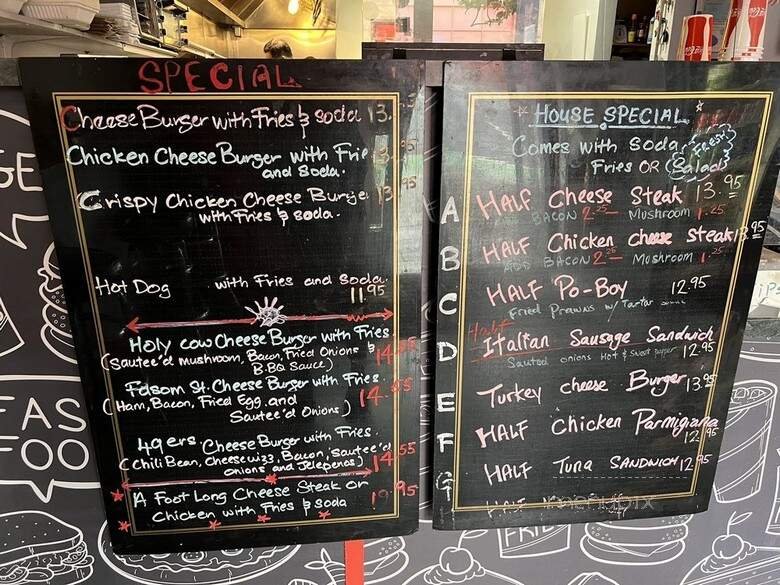 SPECIAL
Cheese Burger with Fries & soda 13.
Chicken Cheese Burger with Frie 13 95
and Soda.
Crispy Chicken Cheese Burge 13 95
with Fries & soda.
Hot Dog with Fries and Soda.
11.95
Holy cow Cheese Burger with Fries
(Sautee'd mushroom, Bacon, Fried Onions &
B.BQ Sauce)
Folsom St. Cheese Burger with Fries 14.55
(Ham, Bacon, Fried Egg and
Sautee'd Onions)
49ers Cheese Burger with Fries.
(Chili Bean, Cheesewizz, Bacon, Sautee'd 14.55
onions and Jelepenos)
A Foot Long Cheese Steak or 19.95
Chicken with Fries & soda
HOUSE SPECIAL
Comes with Soda, FRESH
Fries OR Salad
A HALF Cheese Steak 13.95
BACON 2.25 Mushroom 1.25
B HALF Chicken cheese Steak 13.95
ADD BACON 2.25 Mushroom 1.25
C HALF Po-Boy 12.95
Fried Prawns w/ Tartar
Half
D Italian Sausage Sandwich
Sauted onions Hot & Sweet pepper 12.95
E Turkey cheese Burger 13.95
F HALF Chicken Parmigiana
12.95
G HALF Tuna SANDWICH 12.95
HALF
FAS
FOO
FRIE